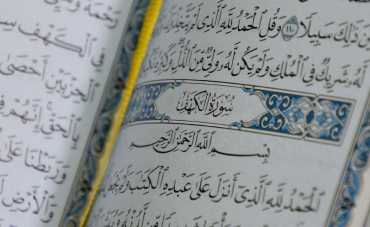 ذَٰلِكَ سَبِيلًا ١١٠ وَقُلِ ٱلْحَمْدُ لِلَّهِ ٱلَّذِى لَمْ يَتَّخِذْ
لَّهُۥ شَرِيكٌ فِى ٱلْمُلْكِ وَلَمْ يَكُن لَّهُۥ وَلِىٌّ مِّنَ ٱلذُّلِّ وَكَبِّرْ
سُورَةُ الْكَهْفِ
بِسْمِ ٱللَّهِ ٱلرَّحْمَٰنِ ٱلرَّحِيمِ
ٱلْحَمْدُ لِلَّهِ ٱلَّذِىٓ أَنزَلَ عَلَىٰ عَبْدِهِ ٱلْكِتَٰبَ وَلَمْ يَجْعَل
رَحْمَةً
فِى ٱلْكَهْفِ
ٱلْحِزْبَيْنِ أَحْصَىٰ
بِٱلْحَقِّ إِنَّهُمْ
وَرَبَطْنَا
وَٱلْأَرْضِ